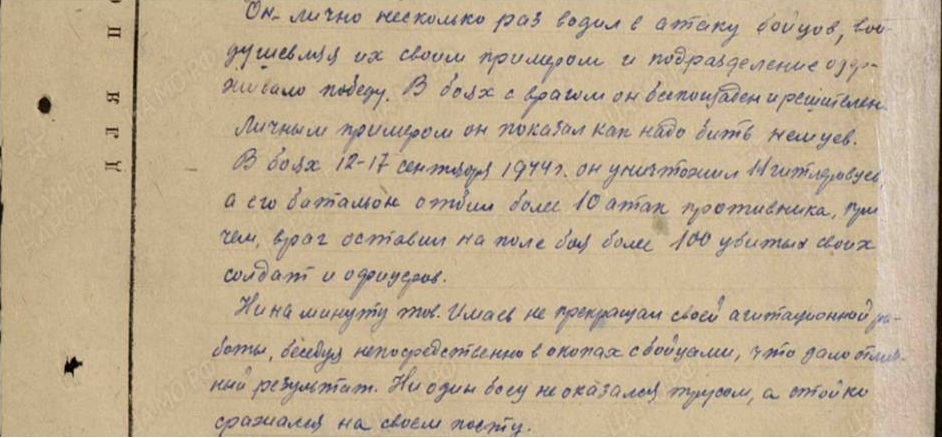 Он лично несколько раз водил в атаку бойцов, вой-
душевляя их своим примером и подразделение одер-
живало победу. В боях с врагом он беспощаден и решителен.
Личным примером он показал как надо бить немцев.
В боях 12-17 сентября 1944г. он уничтожил 11 гитлеровцев
а его батальон отбил более 10 атак противника, при
чем, враг оставил на поле боя более 100 убитых своих
солдат и офицеров.
Ни на минуту тов. Имаев не прекращал своей агитационной ра-
боты, беседуя непосредственно в окопах с бойцами, что дало отлич-
ный результат. Ни один боец не оказался трусом, а стойко
сражался на своем посту.